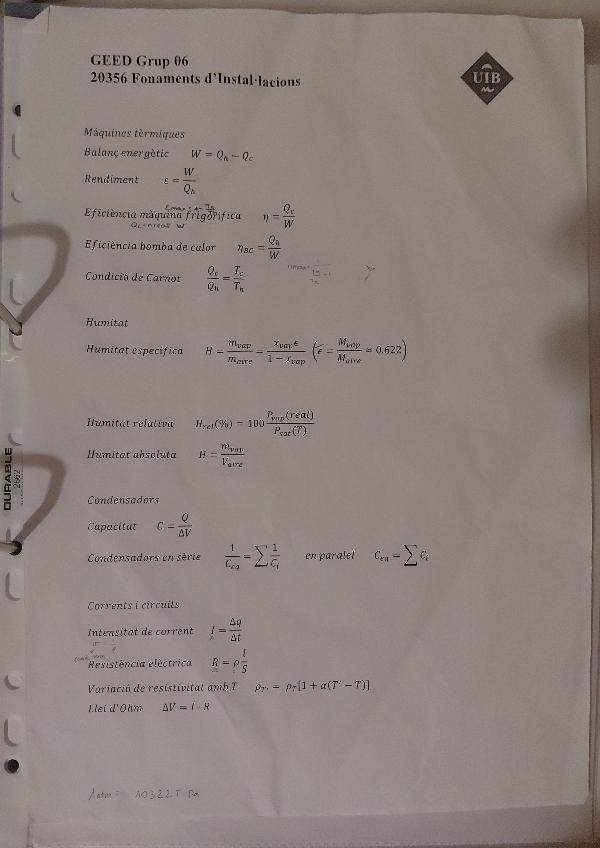 GEED Grup 06
20356 Fonaments d'Instal·lacions
UIB
Màquines tèrmiques
Balanç energètic W = Q_h − Q_c
Rendiment ε = W / Q_h
Eficiència màquina frigorífica η = Q_c / W
Eficiència bomba de calor η_BC = Q_h / W
Condició de Carnot Q_c / Q_h = T_c / T_h
Humitat
Humitat específica H = m_vap / m_aire = x_vap ϵ / (1 − x_vap) (ϵ = M_vap / M_aire = 0.622)
Humitat relativa H_rel(%) = 100 P_vap(real) / P_sat(T)
Humitat absoluta H = m_vap / V_aire
DURABLE
2662
Condensadors
Capacitat C = Q / ΔV
Condensadors en sèrie 1 / C_eq = ∑ 1 / C_i en paralel C_eq = ∑ C_i
Corrents i circuits
Intensitat de corrent I = Δq / Δt
Resistència elèctrica R = ρ l / S
Variació de resistivitat amb T ρ_T' = ρ_T[1 + α(T' − T)]
Llei d'Ohm ΔV = I · R
1 atm =